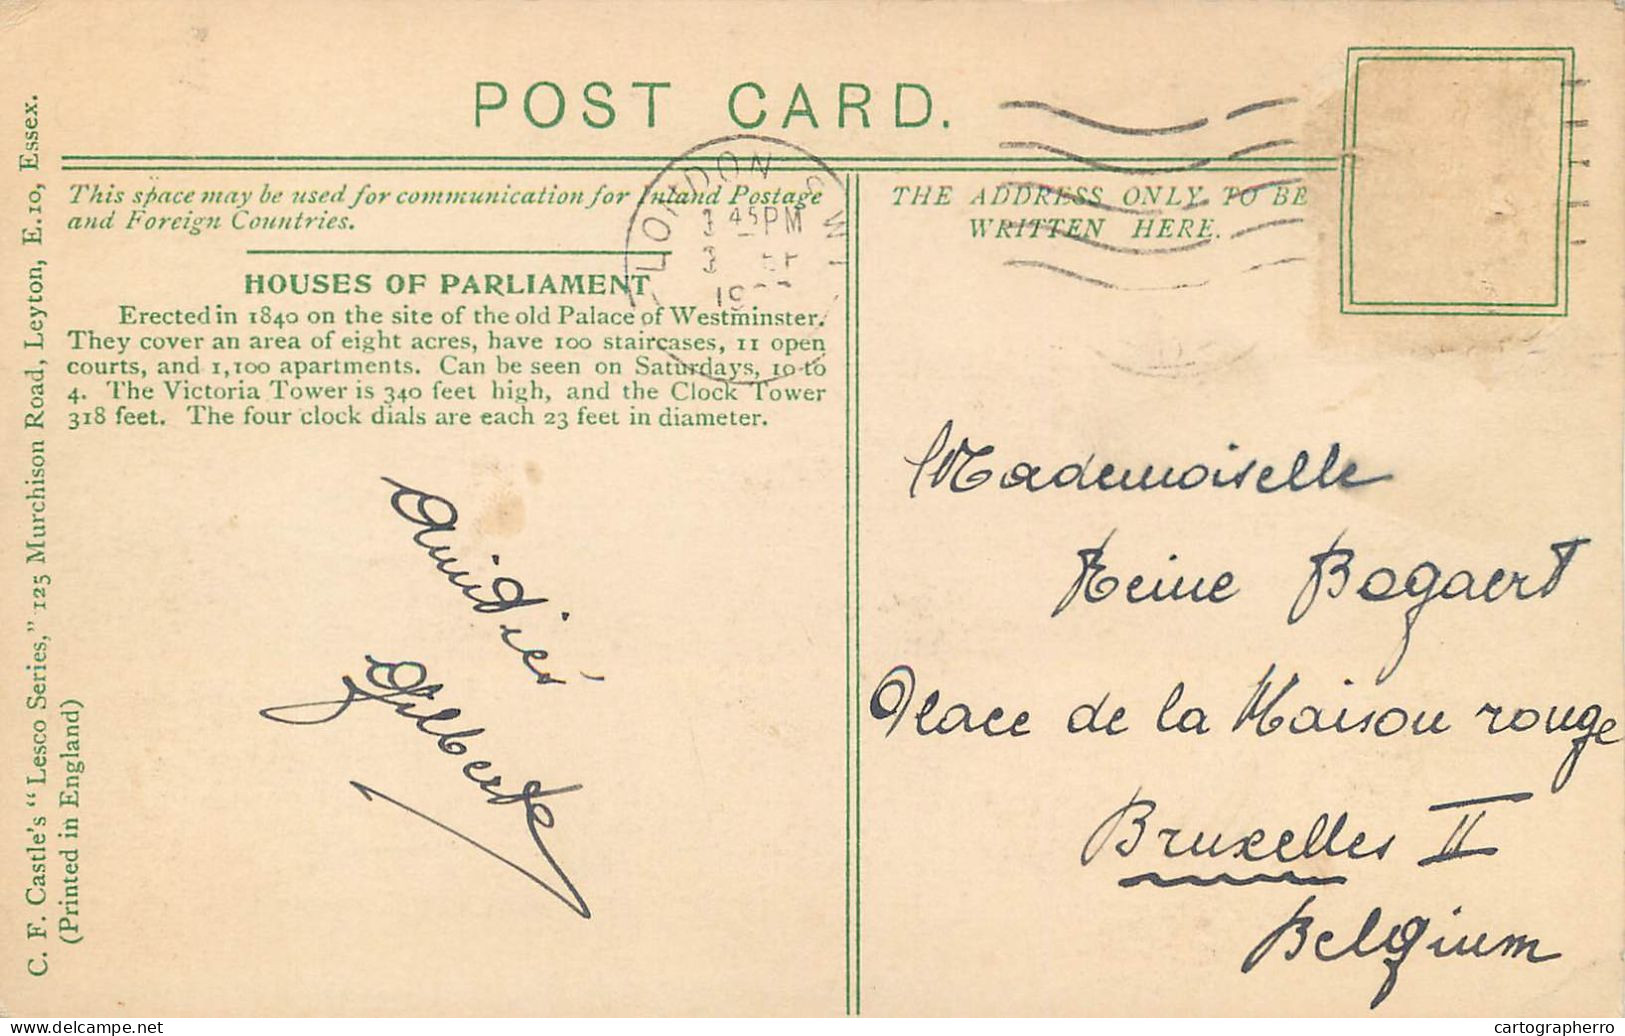 POST CARD.
This space may be used for communication for Inland Postage
and Foreign Countries.
HOUSES OF PARLIAMENT
Erected in 1840 on the site of the old Palace of Westminster.
They cover an area of eight acres, have 100 staircases, 11 open
courts, and 1,100 apartments. Can be seen on Saturdays, 10 to
4. The Victoria Tower is 340 feet high, and the Clock Tower
318 feet. The four clock dials are each 23 feet in diameter.
C. F. Castle's "Lesco Series," 125 Murchison Road, Leyton, E.10, Essex.
(Printed in England)
LONDON S.W.1
3 45 PM
3
THE ADDRESS ONLY TO BE
WRITTEN HERE.
Amitiés
Gilberte
Mademoiselle
Reine Bogaert
Place de la Maison rouge
Bruxelles II
Belgium
delcampe.net
cartographerro